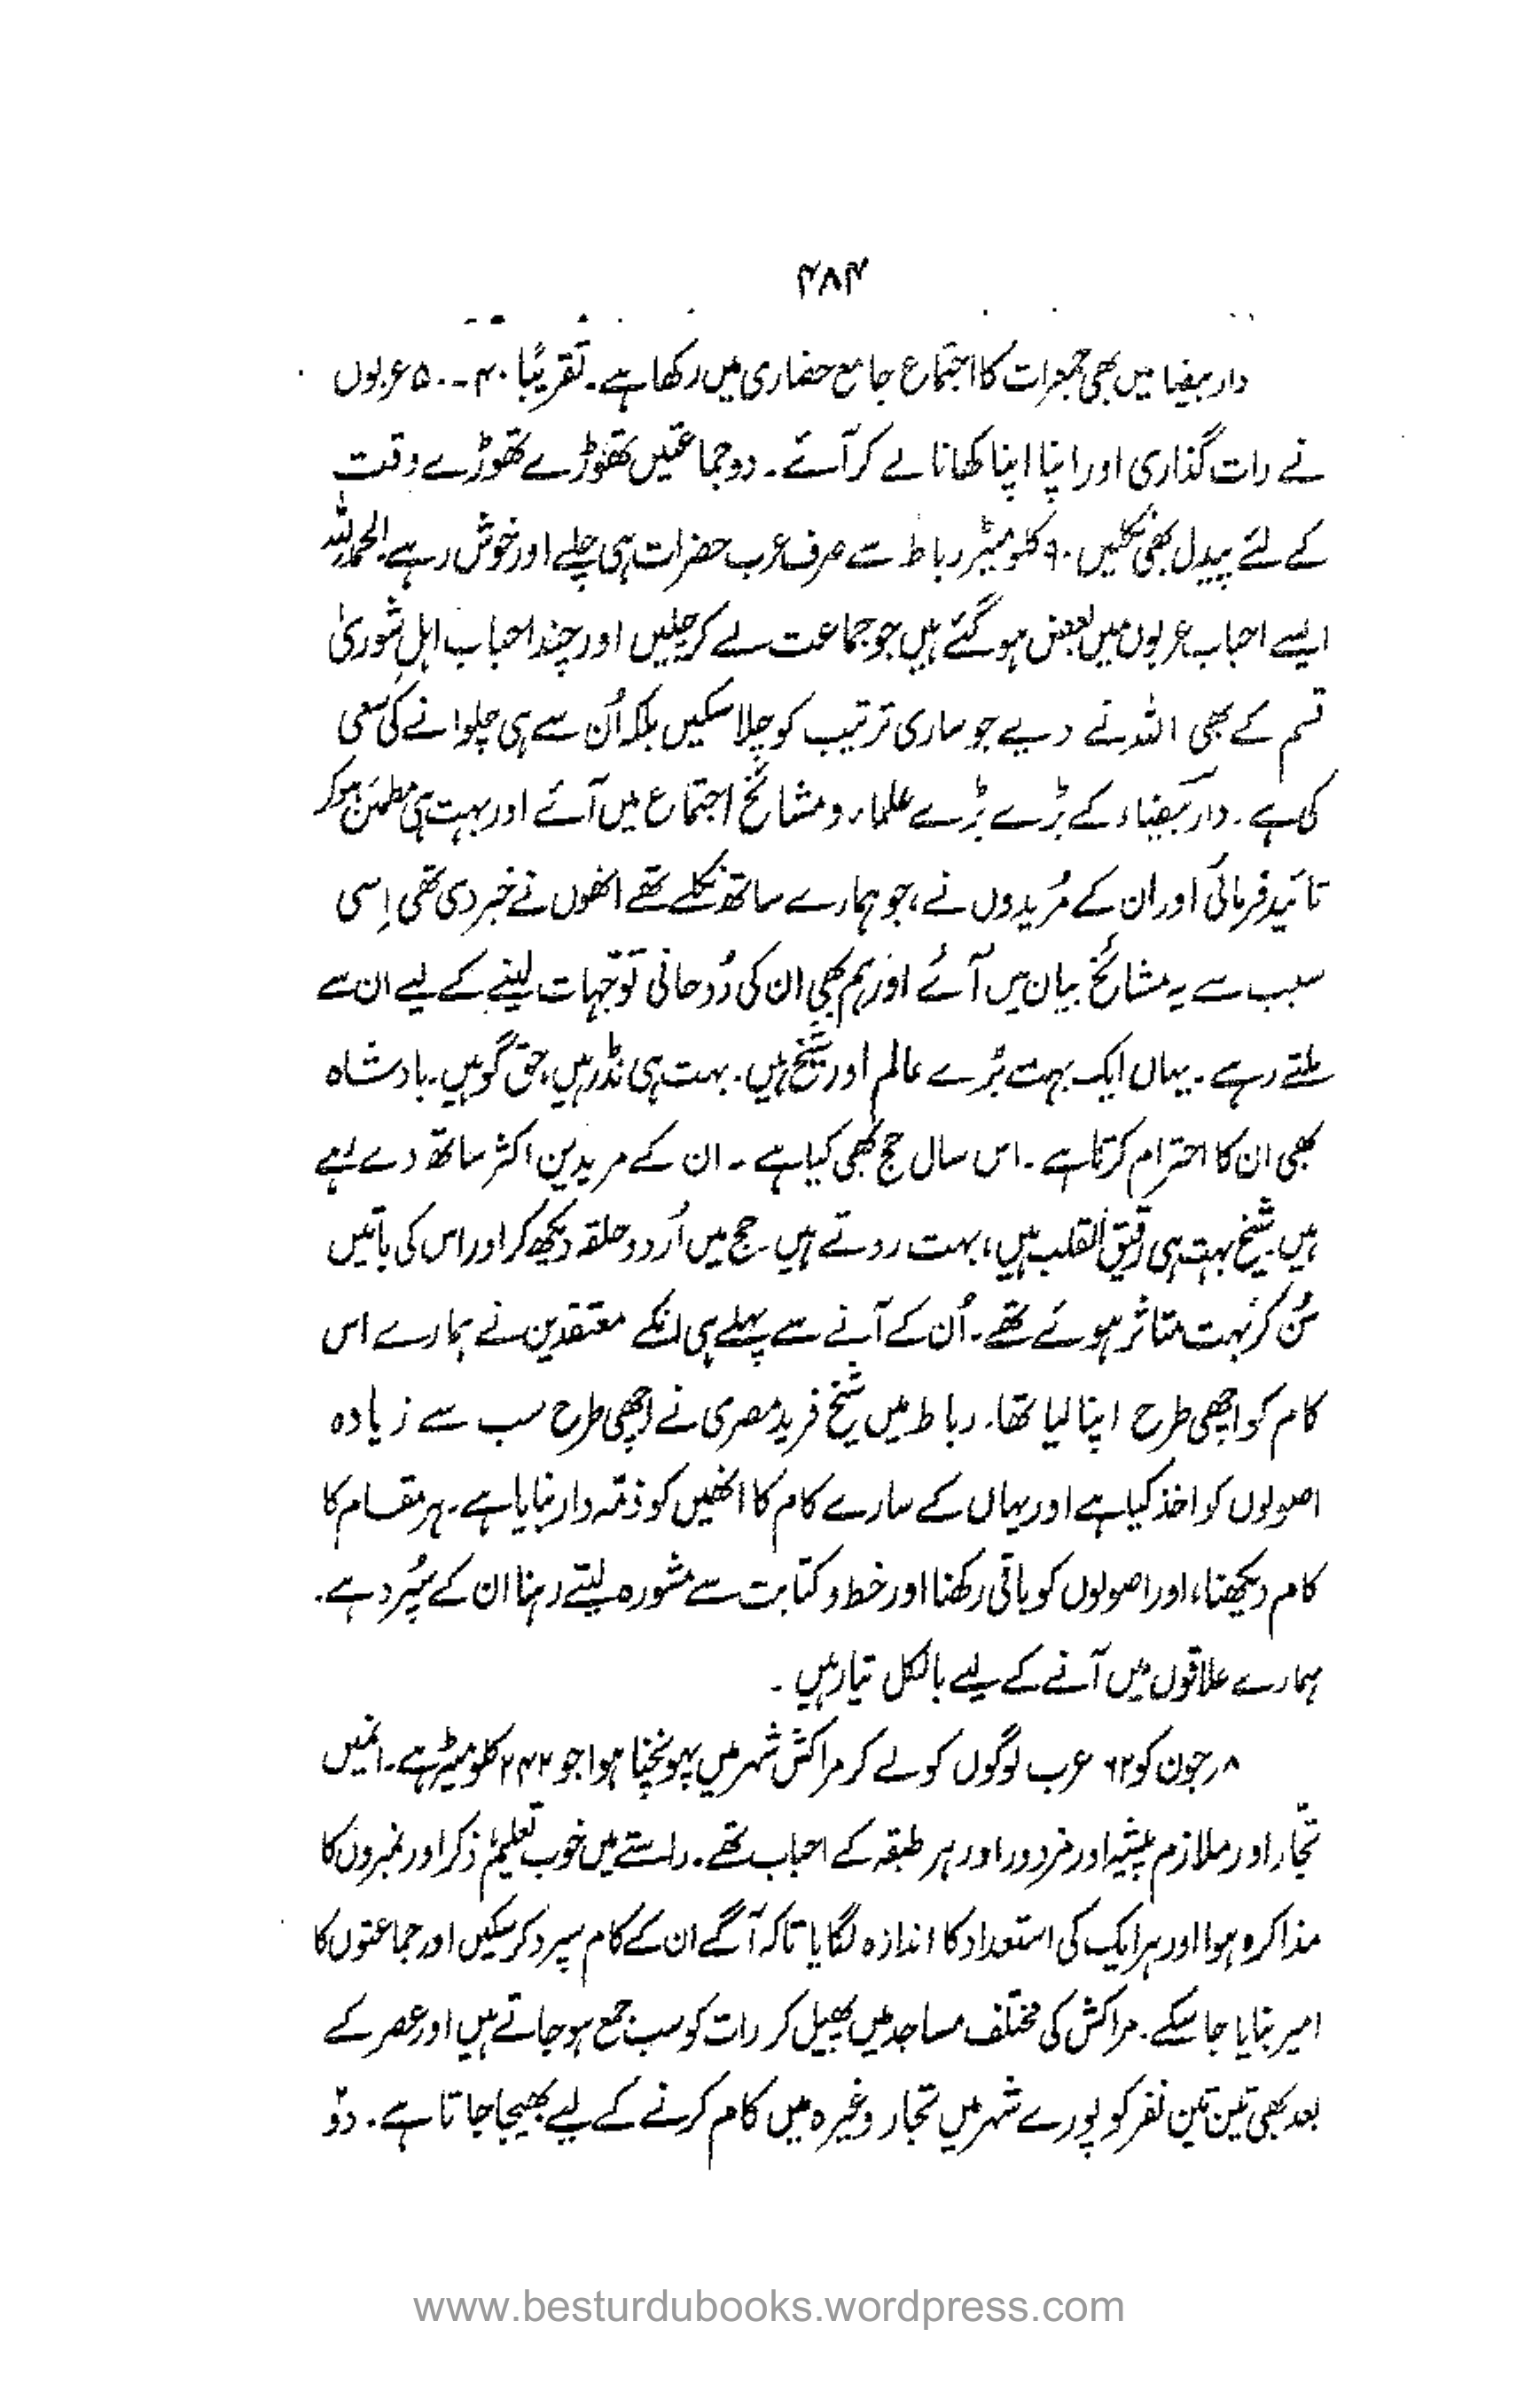 ۴۸۴
دار بیضا میں بھی جمعرات کا اجتماع جامع حفاری میں رکھا ہے۔ تقریبًا ۴۰۔۵۰ عربوں
نے رات گذاری اور اپنا اپنا کھانا لے کر آئے۔ دو جماعتیں تھوڑے تھوڑے وقت
کے لئے پیدل بھی نکلیں ۹۰ کلو میٹر رباط سے صرف عرب حضرات ہی چلے اور خوش رہے الحمد للہ
ایسے احباب عربوں میں بعض ہو گئے ہیں جو جماعت لے کر چلیں اور چند احباب اہلِ شوریٰ
قسم کے بھی اللہ نے دیے جو ساری ترتیب کو چلا سکیں بلکہ اُن سے ہی چلوانے کی سعی
کی ہے۔ دار بیضاء کے بڑے بڑے علماء و مشائخ اجتماع میں آئے اور بہت ہی مطمئن ہو کر
تائید فرمائی اور ان کے مُریدوں نے، جو ہمارے ساتھ نکلے تھے انھوں نے خبر دی تھی اِسی
سبب سے یہ مشائخ بیان میں آئے اور ہم بھی ان کی رُوحانی توجّہات لینے کے لیے ان سے
ملتے رہے۔ یہاں ایک بہت بڑے عالم اور شیخ ہیں۔ بہت ہی نڈر ہیں، حق گو ہیں۔ بادشاہ
بھی ان کا احترام کرتا ہے۔ اس سال حج بھی کیا ہے۔ ان کے مریدین اکثر ساتھ دے رہے
ہیں شیخ بہت ہی رقیق القلب ہیں، بہت روتے ہیں حج میں اُردو حلقہ دیکھ کر اور اس کی باتیں
سُن کر بہت متاثر ہوئے تھے۔ اُن کے آنے سے پہلے ہی انکے معتقدین نے ہمارے اس
کام کو اچھی طرح اپنا لیا تھا۔ رباط میں شیخ فرید مصری نے اچھی طرح سب سے زیادہ
اصولوں کو اخذ کیا ہے اور یہاں کے سارے کام کا انھیں کو ذمّہ دار بنایا ہے۔ ہر مقام کا
کام دیکھنا، اور اصولوں کو باقی رکھنا اور خط و کتابت سے مشورہ لیتے رہنا ان کے سپُرد ہے۔
ہمارے علاقوں میں آنے کے لیے بالکل تیار ہیں۔
۸ رجون کو ۶۲ عرب لوگوں کو لے کر مراکش شہر میں پہونچنا ہوا جو ۲۴۲ کلو میٹر ہے۔ انمیں
تجّار اور ملازم پیشہ اور مزدور اور ہر طبقہ کے احباب تھے۔ راستے میں خوب تعلیم، ذکر اور نمبروں کا
مذاکرہ ہوا اور ہر ایک کی استعداد کا اندازہ لگایا تاکہ آگے ان کے کام سپرد کر سکیں اور جماعتوں کا
امیر بنایا جا سکے۔ مراکش کی مختلف مساجد میں پھیل کر رات کو سب جمع ہو جاتے ہیں اور عصر کے
بعد بھی تین تین نفر کو پورے شہر میں تجار وغیرہ میں کام کرنے کے لیے بھیجا جاتا ہے۔ دوّ
www.besturdubooks.wordpress.com